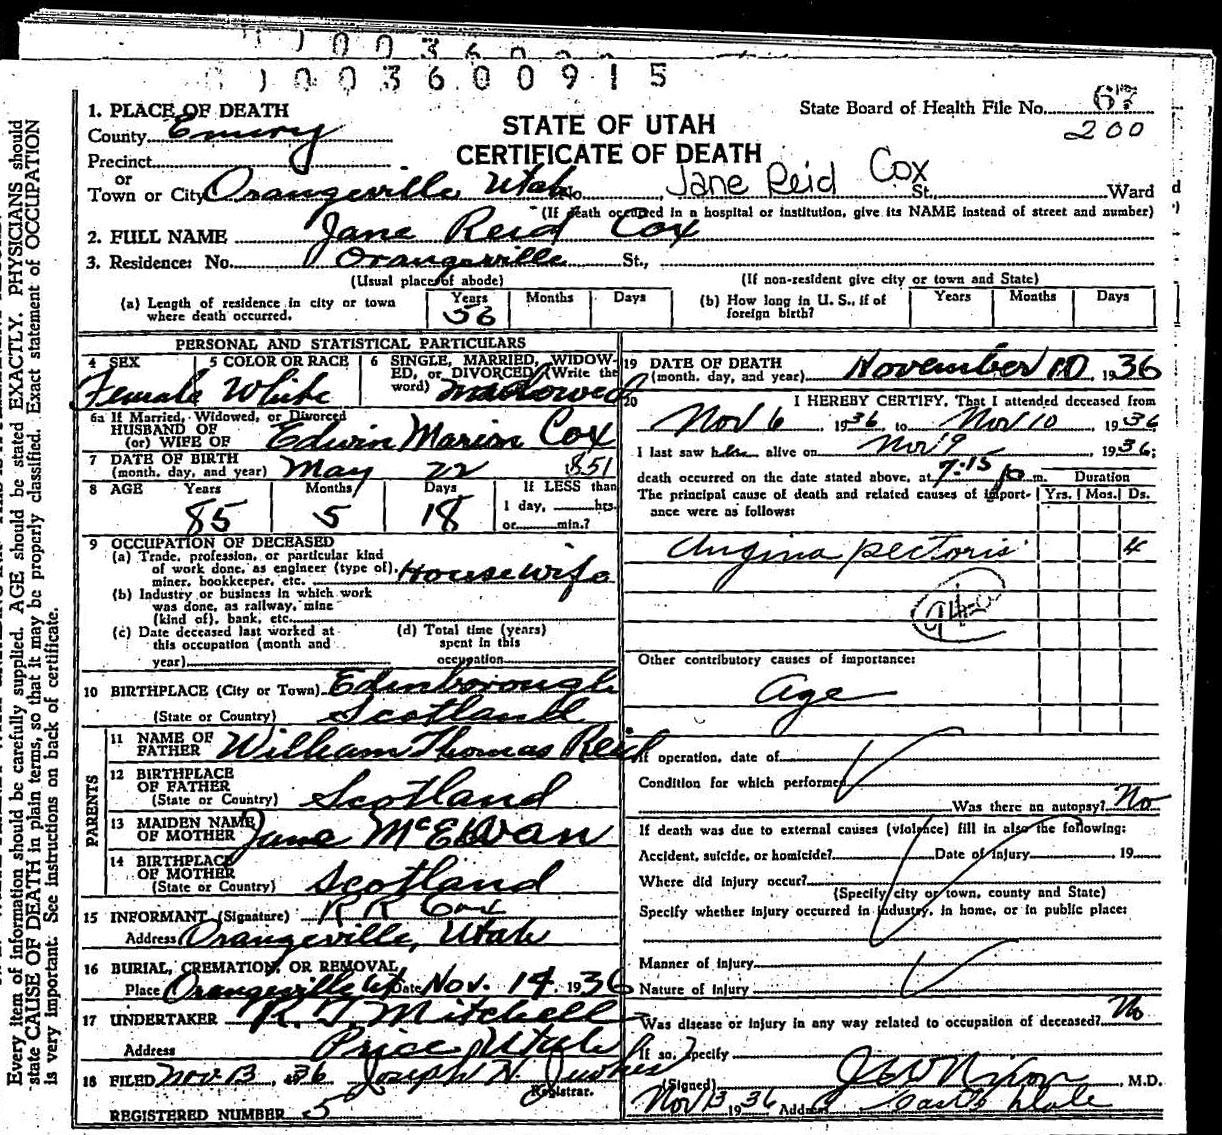 003600915
1. PLACE OF DEATH
State Board of Health File No. 67
County Emery
STATE OF UTAH
200
Precinct
CERTIFICATE OF DEATH
or
Town or City Orangeville Utah No. Jane Reid Cox St. Ward
(If death occurred in a hospital or institution, give its NAME instead of street and number)
2. FULL NAME Jane Reid Cox
3. Residence: No. Orangeville St.,
(Usual place of abode) (If non-resident give city or town and State)
(a) Length of residence in city or town where death occurred. Years 56 Months Days (b) How long in U. S., if of foreign birth? Years Months Days
PERSONAL AND STATISTICAL PARTICULARS
4 SEX 5 COLOR OR RACE 6 SINGLE, MARRIED, WIDOW-
ED, or DIVORCED (Write the
word)
Female White Widowed
6a If Married, Widowed, or Divorced
HUSBAND OF
(or) WIFE OF Edwin Marion Cox
7 DATE OF BIRTH
(month, day, and year) May 22 1851
8 AGE Years Months Days If LESS than
85 5 18 1 day, hrs.
or min.?
9 OCCUPATION OF DECEASED
(a) Trade, profession, or particular kind
of work done, as engineer (type of),
miner, bookkeeper, etc. Housewife
(b) Industry or business in which work
was done, as railway, mine
(kind of), bank, etc.
(c) Date deceased last worked at
this occupation (month and
year)
(d) Total time (years)
spent in this
occupation
10 BIRTHPLACE (City or Town) Edinborough
(State or Country) Scotland
PARENTS
11 NAME OF
FATHER William Thomas Reid
12 BIRTHPLACE
OF FATHER
(State or Country) Scotland
13 MAIDEN NAME
OF MOTHER Jane McEwan
14 BIRTHPLACE
OF MOTHER
(State or Country) Scotland
15 INFORMANT (Signature) R R Cox
Address Orangeville, Utah
16 BURIAL, CREMATION, OR REMOVAL
Place Orangeville Ut Date Nov. 14, 1936
17 UNDERTAKER R. T Mitchell
Address Price Utah
18 FILED Nov 13, 1936 Joseph H. Jewkes
Registrar.
REGISTERED NUMBER 5
19 DATE OF DEATH
(month, day, and year) November 10, 1936
20 I HEREBY CERTIFY, That I attended deceased from
Nov 6, 1936, to Nov 10, 1936
I last saw her alive on Nov 9, 1936;
death occurred on the date stated above, at 7:15 p m. Duration
The principal cause of death and related causes of import-
ance were as follows: Yrs. Mos. Ds.
Angina pectoris 4
Other contributory causes of importance:
Age
If operation, date of
Condition for which performed
Was there an autopsy? No
If death was due to external causes (violence) fill in also the following:
Accident, suicide, or homicide? Date of injury 19
Where did injury occur?
(Specify city or town, county and State)
Specify whether injury occurred in industry, in home, or in public place:
Manner of injury
Nature of injury
Was disease or injury in any way related to occupation of deceased? No
If so, specify
(Signed) J W Nixon, M.D.
Nov 13 1936 Address Castle Dale
Every item of information should be carefully supplied. AGE should be stated EXACTLY. PHYSICIANS should
state CAUSE OF DEATH in plain terms, so that it may be properly classified. Exact statement of OCCUPATION
is very important. See instructions on back of certificate.